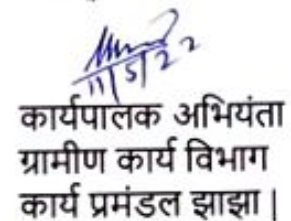 11/5/22
कार्यपालक अभियंता
ग्रामीण कार्य विभाग
कार्य प्रमंडल झाझा |